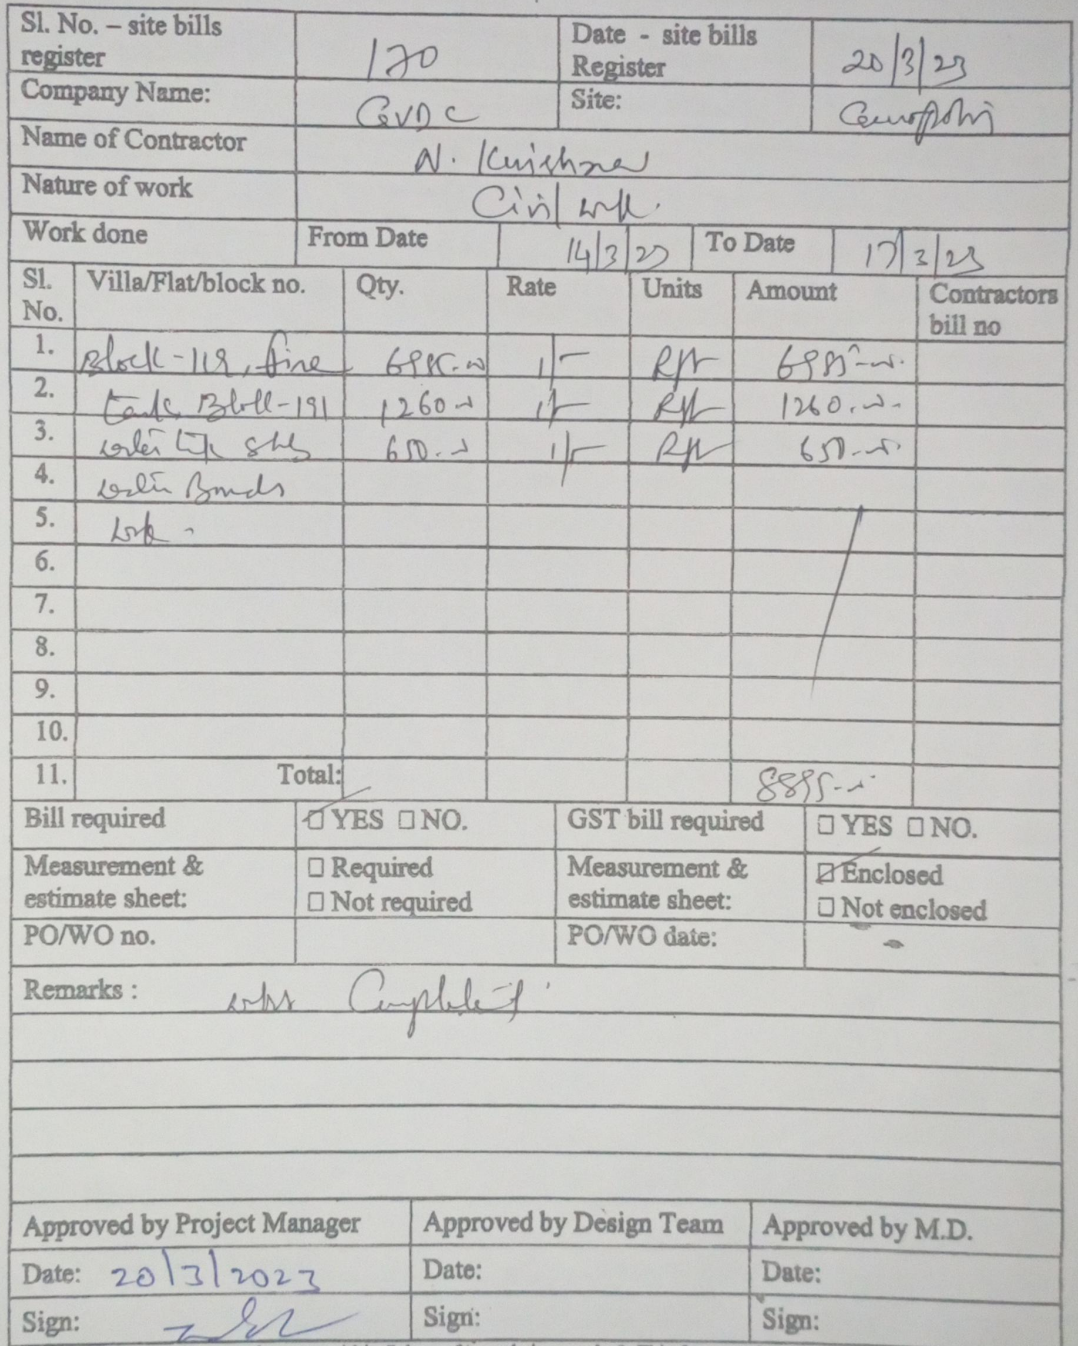 Sl. No. – site bills register 170 Date - site bills Register 20/3/23
Company Name: GVDC Site:
Name of Contractor N. Krishna
Nature of work Civil work.
Work done From Date 14/3/23 To Date 17/3/23
Sl. No. Villa/Flat/block no. Qty. Rate Units Amount Contractors bill no
1. Block-119, fire 1/- Rft
2. tank Block-191 1260 1/- Rft 1260
3. 650 1/- Rft 650
4.
5. work
6.
7.
8.
9.
10.
11. Total: 8895
Bill required YES NO. GST bill required YES NO.
Measurement & estimate sheet: Required Not required Measurement & estimate sheet: Enclosed Not enclosed
PO/WO no. PO/WO date:
Remarks : Completed
Approved by Project Manager Approved by Design Team Approved by M.D.
Date: 20/3/2023 Date: Date:
Sign: Sign: Sign: